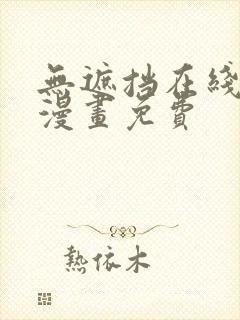 無遮挡在綫
漫畫免費
熱依木